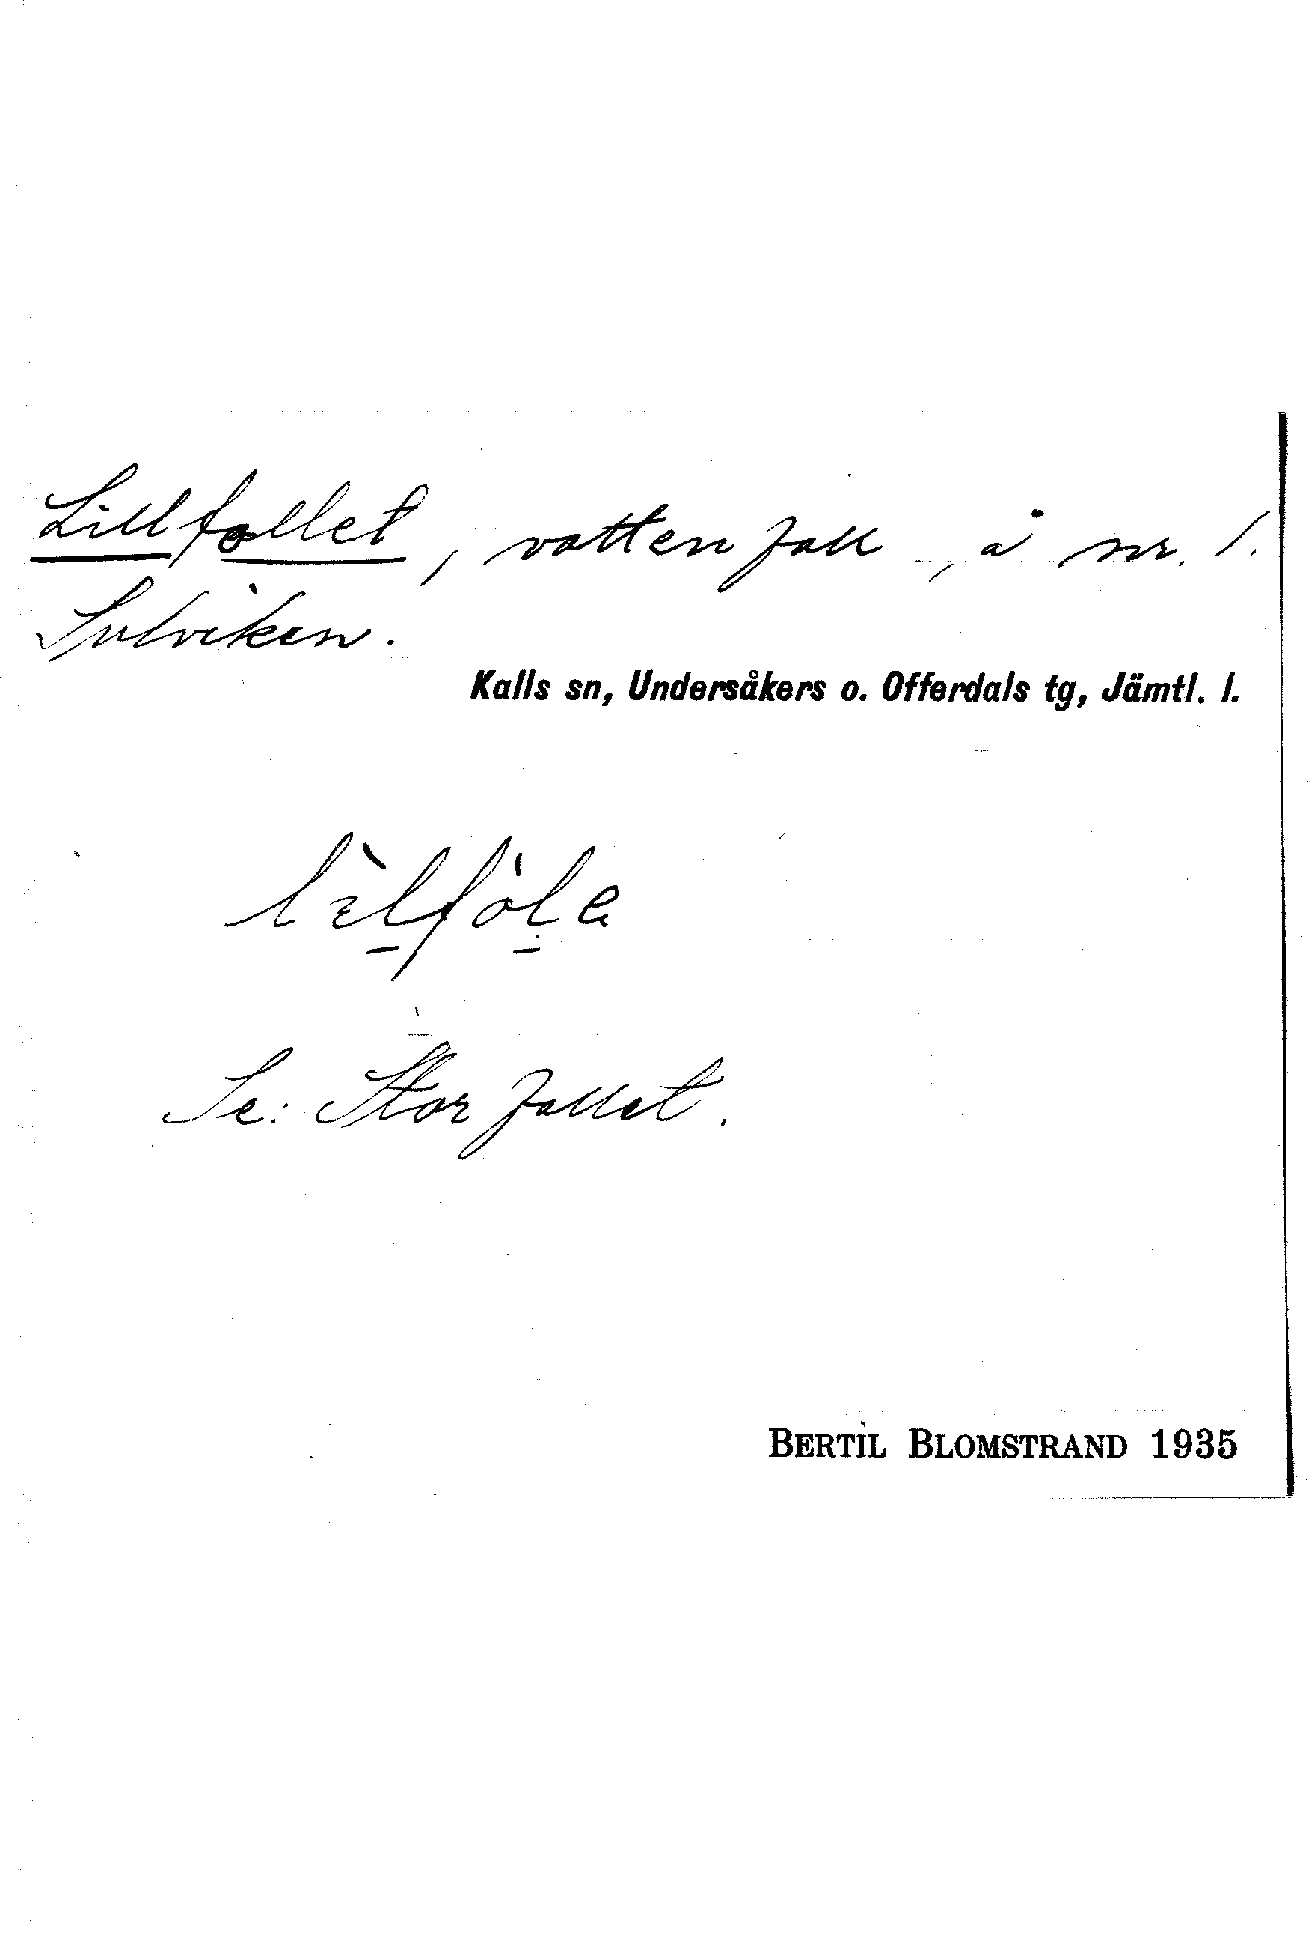 Lillfallet, vattenfall, å nr. 1.
Sulviken.
Kalls sn, Undersåkers o. Offerdals tg, Jämtl. l.
Se: Storfallet.
BERTIL BLOMSTRAND 1935